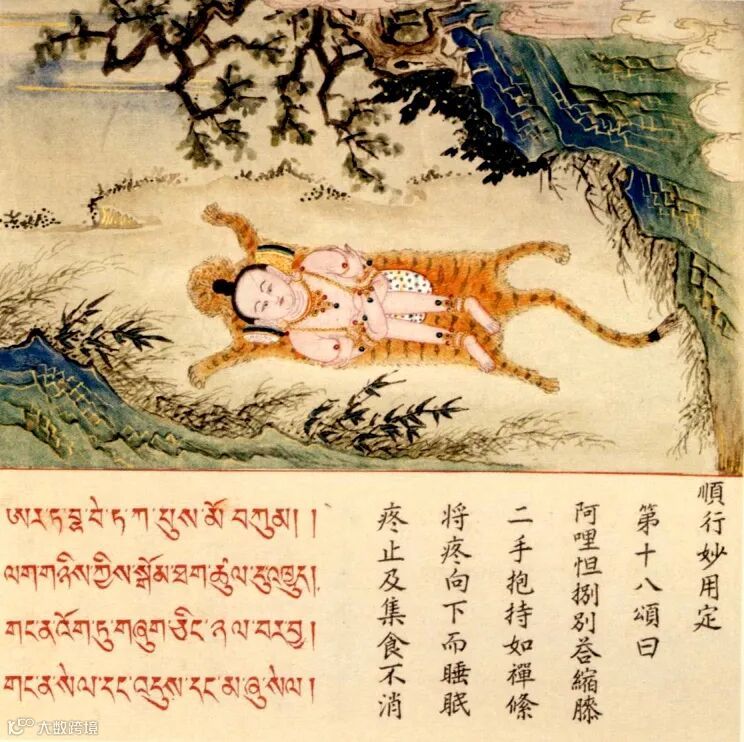 ཨ་ར་ཏ་བྷ་བེ་ཏ་ཀ་པུས་མོ་བཀུམ། །
ལག་གཉིས་ཀྱིས་སྒོམ་ཐག་ཚུལ་དུ་འཁྱུད།
གང་ན་འོག་ཏུ་གཞུག་ཅིང་ཉལ་བར་བྱ །
གང་ན་སེལ་དང་འདུས་དང་མ་ཞུ་སེལ །
順行妙用定
第十八頌曰
阿哩怛捌別荅縮膝
二手抱持如禪絛
将疼向下而睡眠
疼止及集食不消
大数跨境